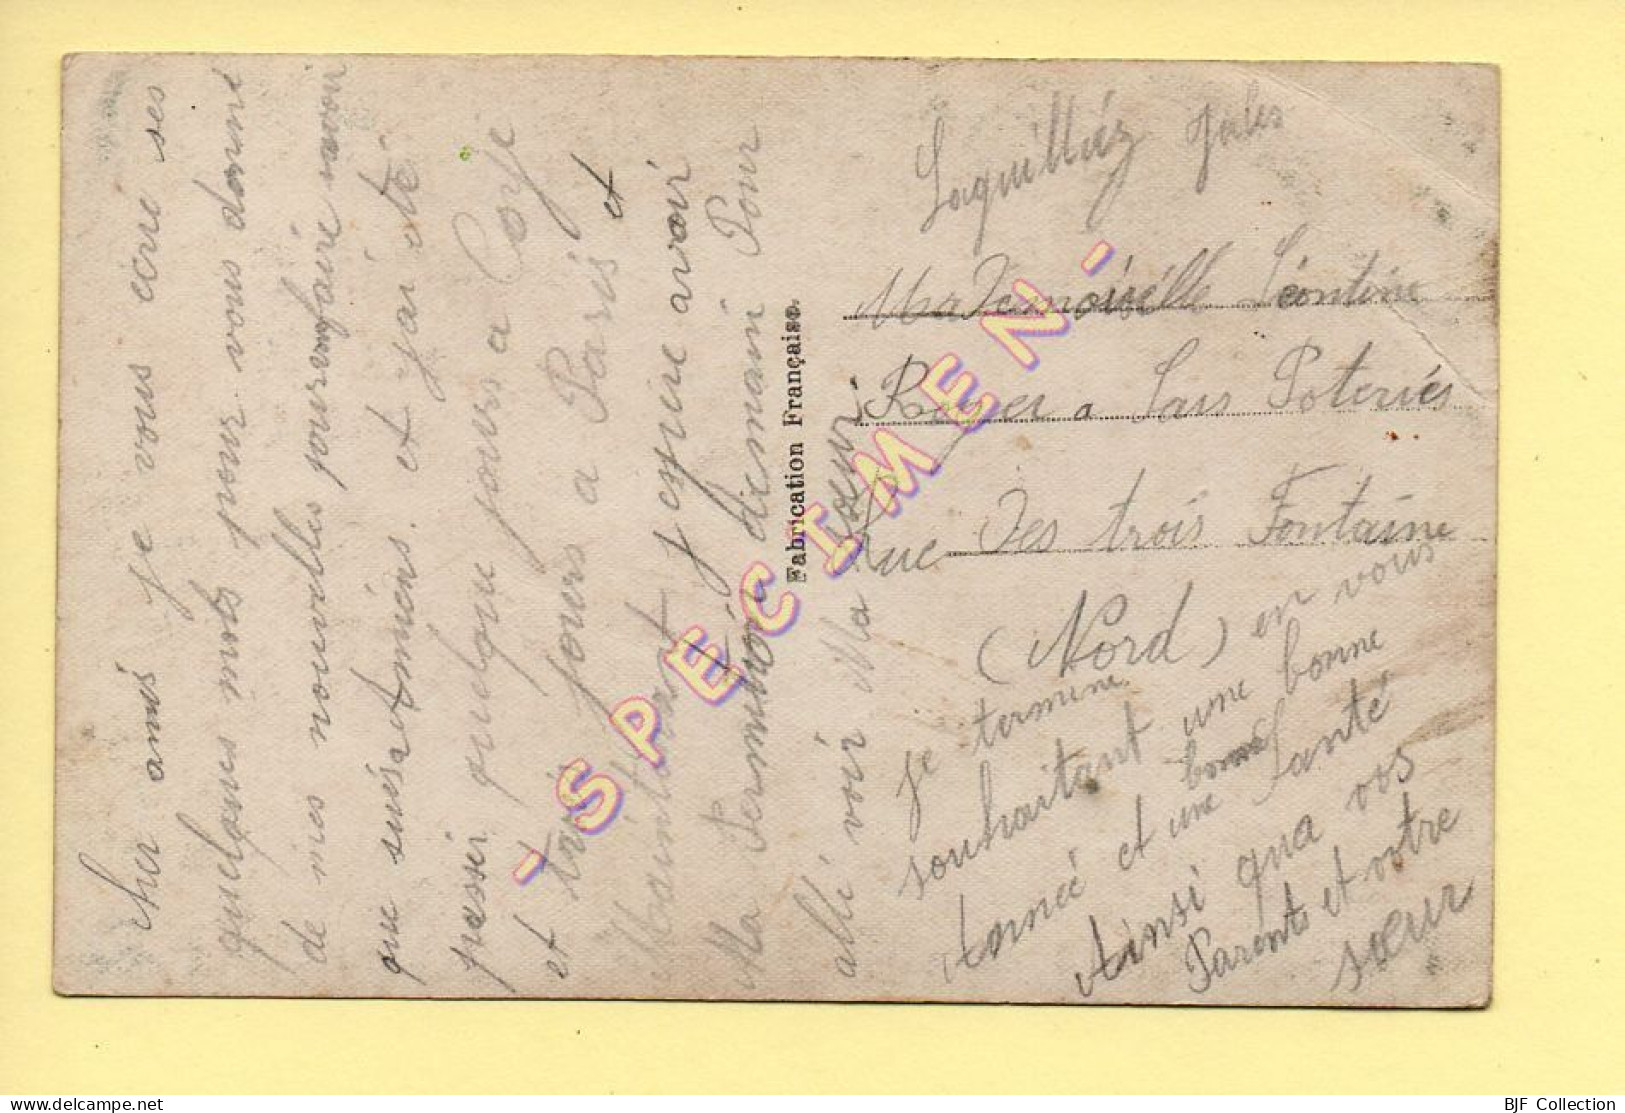 cher amis je vous ecrie ses
quelques mots pour vous donné
de mes nouvelles pour
que suis a Amiens. et j'ai ité
passer quelque jours a Corse
et trois jours a Paris et
Maintenant j'espere avoir
Ma Permission demain Pour
allé voir Ma soeur
Fabrication Française.
Jules
Mademoiselle Léontine
Royer a Sars Poteries
Rue des trois Fontaine
(Nord)
je termine en vous
souhaitant une bonne
Année et une bonne Santé
Ainsi qua vos
Parents et votre
sœur
- SPECIMEN -
BJF Collection